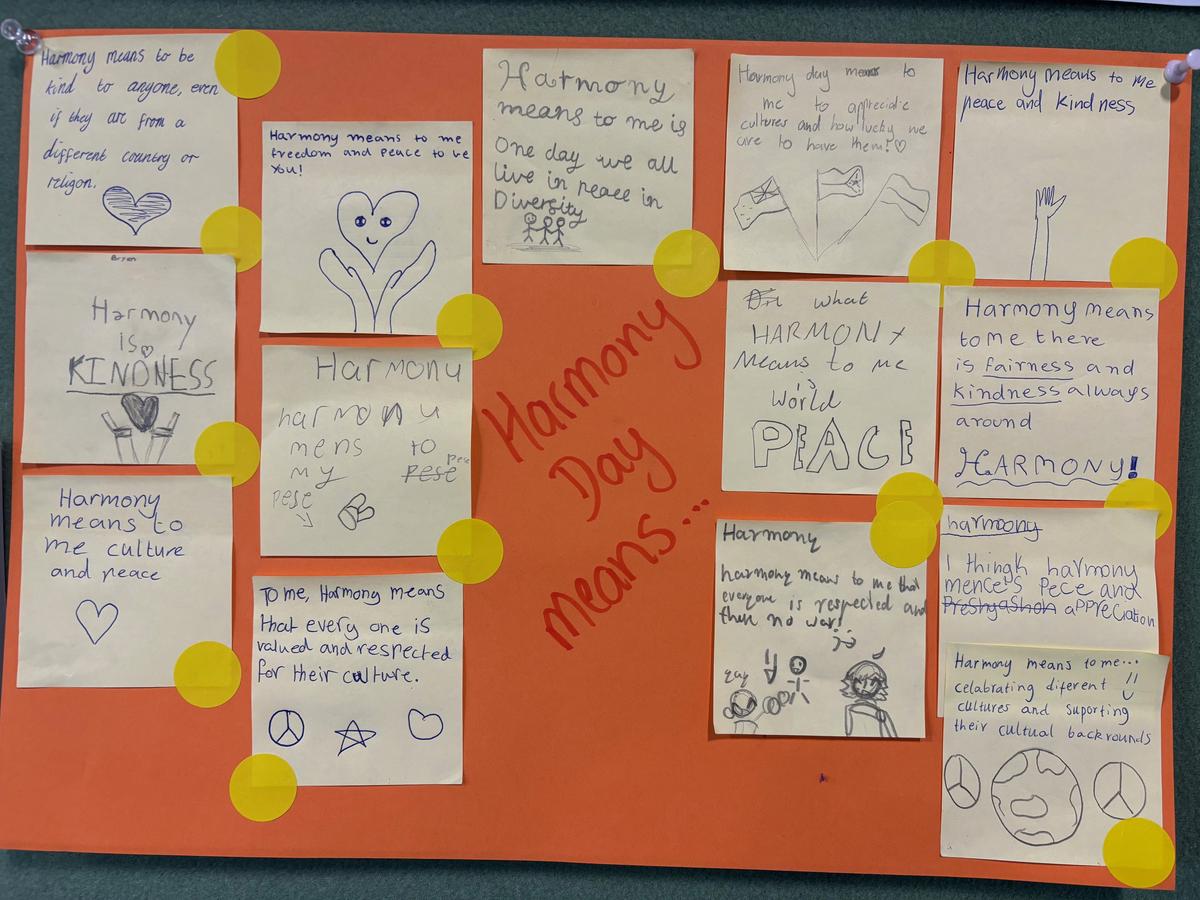 Harmony means to be
kind to anyone, even
if they are from a
different country or
religon.
Bryan
Harmony
is
KINDNESS
Harmony
means to
me culture
and peace
Harmony means to me
freedom and peace to be
you!
Harmony
harmony
mens to
my pese
pese
pese
To me, Harmony means
that every one is
valued and respected
for their culture.
Harmony
means to me is
One day we all
live in peace in
Diversity
Harmony
Day
means...
Harmony day means to
me to appreciate
cultures and how lucky we
are to have them!♡
what
HARMONY
Means to me
is
World
PEACE
Harmony
harmony means to me that
everyone is respected and
there no war!
yay
Harmony means to me
peace and kindness
Harmony means
to me there
is fairness and
kindness always
around
HARMONY!
harmoony
I thingk harmony
mences Pece and
Preshyashon aPPreciation
Harmony means to me...
celabrating diferent
cultures and suporting
their cultural backrounds